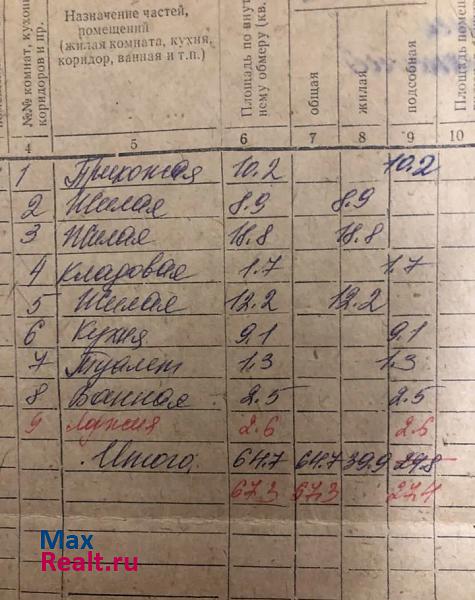 №№ комнат, кухонь
коридоров и пр.
Назначение частей,
помещений
(жилая комната, кухня,
коридор, ванная и т.п.)
Площадь по внут
нему обмеру (кв.
общая
жилая
подсобная
Площадь помещ
4 5 6 7 8 9 10
1 Прихожая 10.2 10.2
2 Жилая 8.9 8.9
3 Жилая 18.8 18.8
4 Кладовая 1.7 1.7
5 Жилая 12.2 12.2
6 Кухня 9.1 9.1
7 Туалет 1.3 1.3
8 Ванная 2.5 2.5
9 Лоджия 2.6 2.6
Итого 64.7 64.7 39.9 24.8
67.3 67.3 27.4
Max
Realt.ru